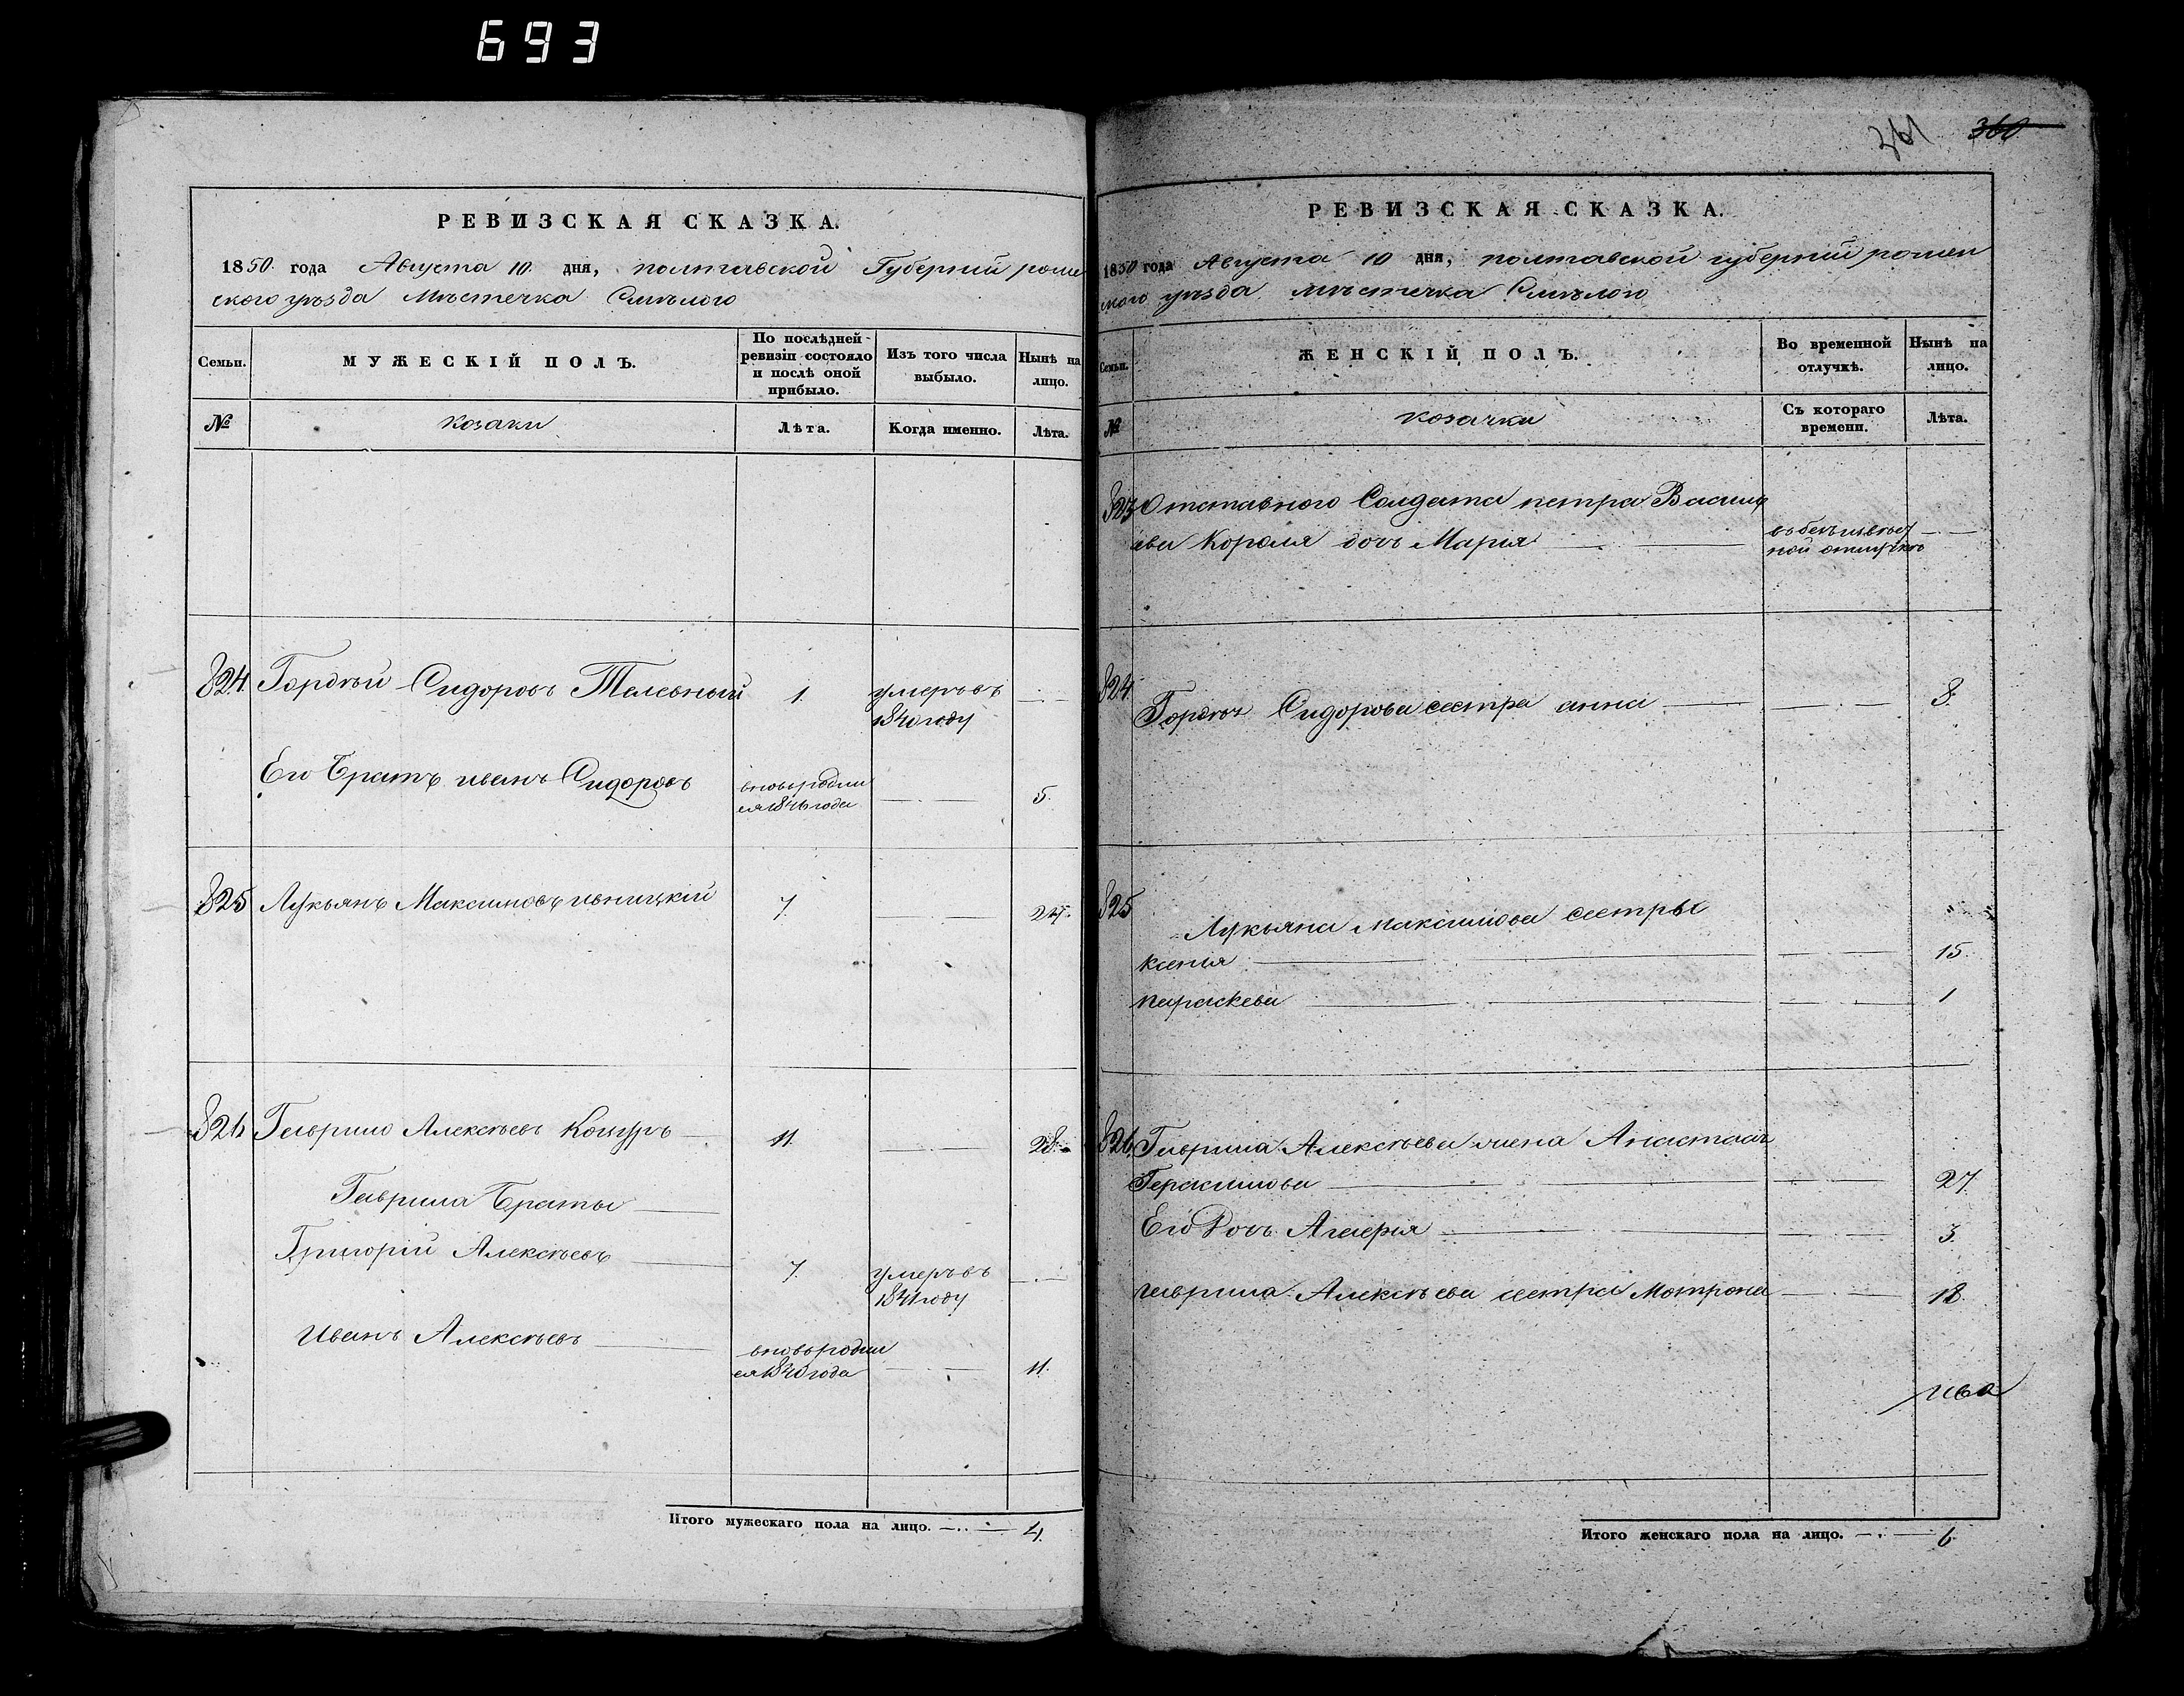 693
РЕВИЗСКАЯ СКАЗКА.
1850 года Августа 10 дня, полтавской Губернии роме
ского уѣзда Мѣстечка Смѣлого
Семьи.
МУЖЕСКІЙ ПОЛЪ.
По послѣдней ревизіи состояло и послѣ оной прибыло.
Изъ того числа выбыло.
Нынѣ на лицо.
№
козаки
Лѣта.
Когда именно.
Лѣта.
824 Гордѣй Сидоровъ 1. умеръ въ
1840 году
Его Братъ иванъ Сидоровъ вновь родил
ся 1846 года 5.
825 Лукьянъ Максимовъ ивницкій 7. 24.
826 Гаврило Алексѣевъ Коцуръ 11. 28.
Гаврила Браты
Григорій Алексѣевъ 7. умеръ въ
1841 году
Иванъ Алексѣевъ вновь родил
ся 1840 года 11.
Итого мужескаго пола на лицо. 4.
361 360
РЕВИЗСКАЯ СКАЗКА.
1850 года Августа 10 дня, полтавской губерніи ромен
ского уѣзда мѣстечка Смѣлого
Семьи.
ЖЕНСКІЙ ПОЛЪ.
Во временной отлучкѣ.
Нынѣ на лицо.
№
козачки
Съ котораго времени.
Лѣта.
823 Отставного Солдата петра Василь
ева Короля дочь Марія въ безъизвѣст
ной отлучкѣ
824 Гордѣя Сидорова сестра анна 8.
825 Лукьяна Максимова сестры
ксенія 15.
параскева 1
826 Гаврила Алексѣева жена Анастасія
Герасимова 27.
Его Дочь Агафія 3.
гаврила Алексѣева сестра Мотрона 18.
Итого женскаго пола на лицо. 6.